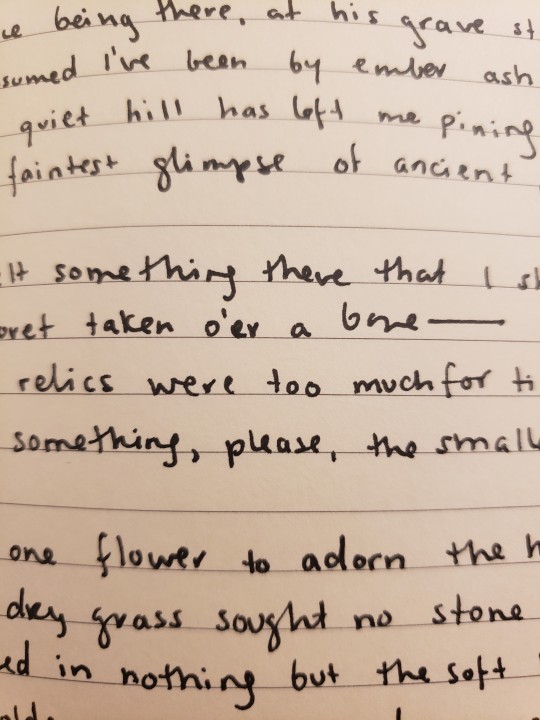 being there, at his grave st
sumed I've been by ember ash
quiet hill has left me pining
faintest glimpse of ancient
something there that I sh
oret taken o'er a bone—
relics were too much for ti
something, please, the small
one flower to adorn the h
dry grass sought no stone
ed in nothing but the soft